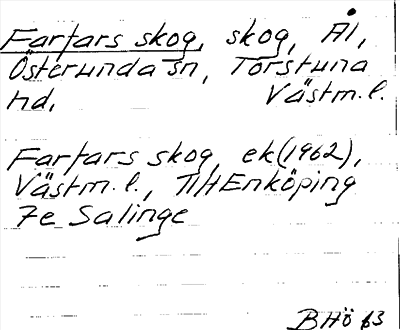 Farfars skog, skog, Ål,
Österunda sn, Torstuna
hd, Västm.l.
Farfars skog, ek (1962),
Västm.l., Till Enköping
7e Salinge
BHö 63